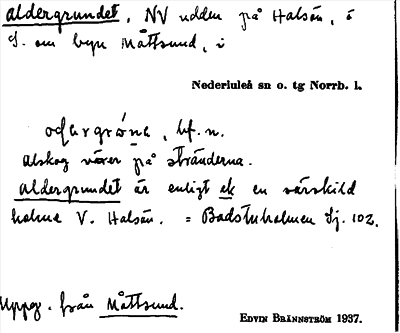 aldergrundet, NV udden på Halsön, ö
S. om byn Måttsund, i
Nederluleå sn o. tg Norrb. l.
bf. n.
Alskog växer på stränderna.
aldergrundet är enligt ek en särskild
holme V. Halsön. = Badstuholmen Sj. 102.
Uppg. från Måttsund.
EDVIN BRÄNNSTRÖM 1937.